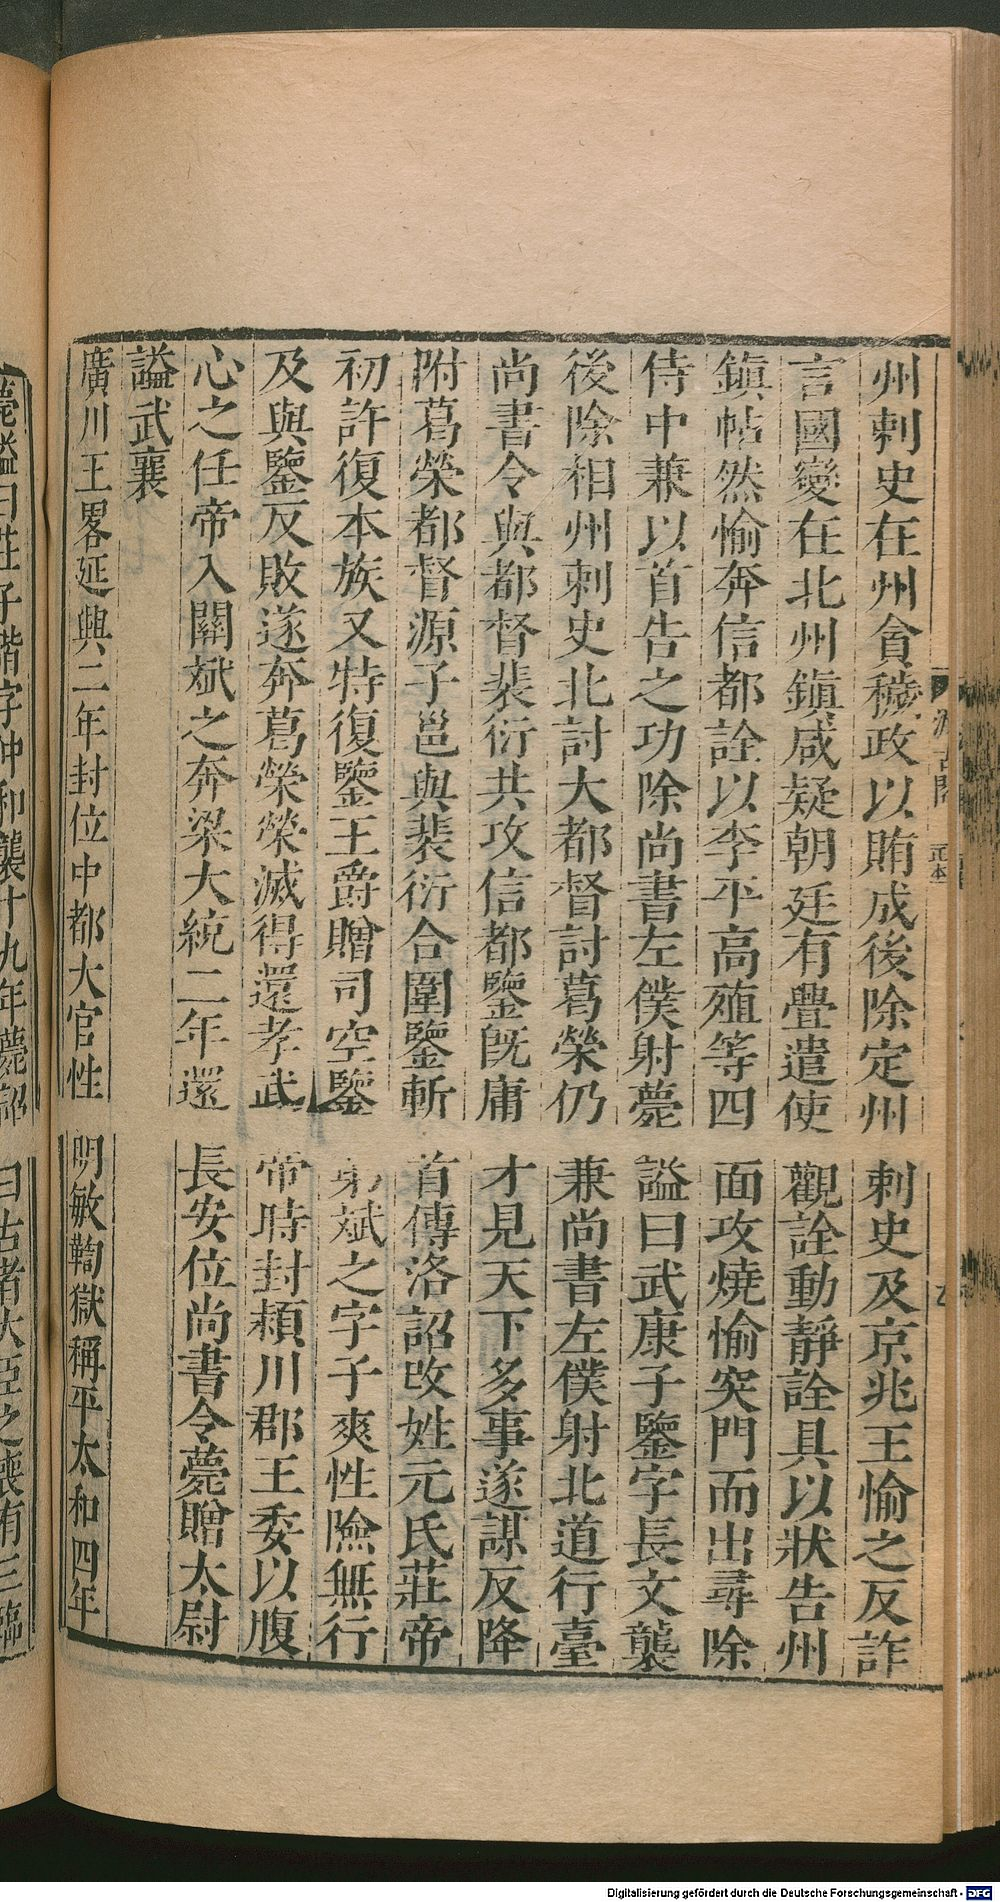 州刺史在州貪穢政以賄成後除定州刺史及京兆王愉之反詐
言國變在北州鎮咸疑朝廷有疊遣使觀詮動靜詮具以狀告州
鎮帖然愉奔信都詮以李平高殖等四面攻燒愉突門而出尋除
侍中兼以首告之功除尚書左僕射薨謚曰武康子鑒字長文襲
後除相州刺史北討大都督討葛榮仍兼尚書左僕射北道行臺
尚書令與都督裴衍共攻信都鑒旣庸才見天下多事遂謀反降
附葛榮都督源子邕與裴衍合圍鑒斬首傳洛詔改姓元氏莊帝
初許復本族又特復鑒王爵贈司空鑒弟斌之字子爽性險無行
及與鑒反敗遂奔葛榮榮滅得還孝武帝時封潁川郡王委以腹
心之任帝入關斌之奔梁大統二年還長安位尚書令薨贈太尉
謚武襄
廣川王畧延興二年封位中都大官性明敏鞫獄稱平太和四年
薨謚曰莊子諧字仲和襲十九年薨詔曰古者大臣之喪有三臨
汲古閣
正本
Digitalisierung gefördert durch die Deutsche Forschungsgemeinschaft - DFG